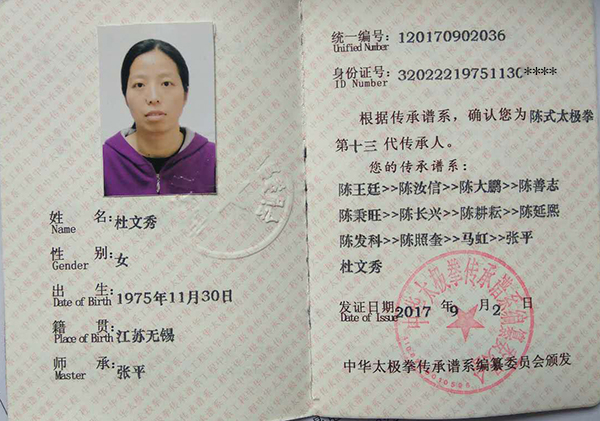 姓 名：杜文秀
Name
性 别：女
Gender
出 生：1975年11月30日
Date of Birth
籍 贯：江苏无锡
Place of Birth
师 承：张平
Master
统一编号：120170902036
Unified Number
身份证号：32022219751130****
ID Number
根据传承谱系，确认您为陈式太极拳
第十三 代传承人。
您的传承谱系：
陈王廷>>陈汝信>>陈大鹏>>陈善志
陈秉旺>>陈长兴>>陈耕耘>>陈延熙
陈发科>>陈照奎>>马虹>>张平
杜文秀
发证日期 2017 年 9 月 2 日
Date of Issue
中华太极拳传承谱系编纂委员会
中华太极拳传承谱系编纂委员会颁发